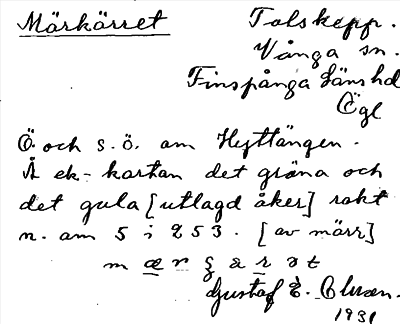 Märkärret
Tolskepp.
Vånga sn.
Finspånga läns hd
Ögl
Ö. och s.ö. om Hyttängen.
Å ek-kartan det gröna och
det gula [utlagd åker] rakt
n. om 5 i 253. [av märr]
Gustaf E.
1931